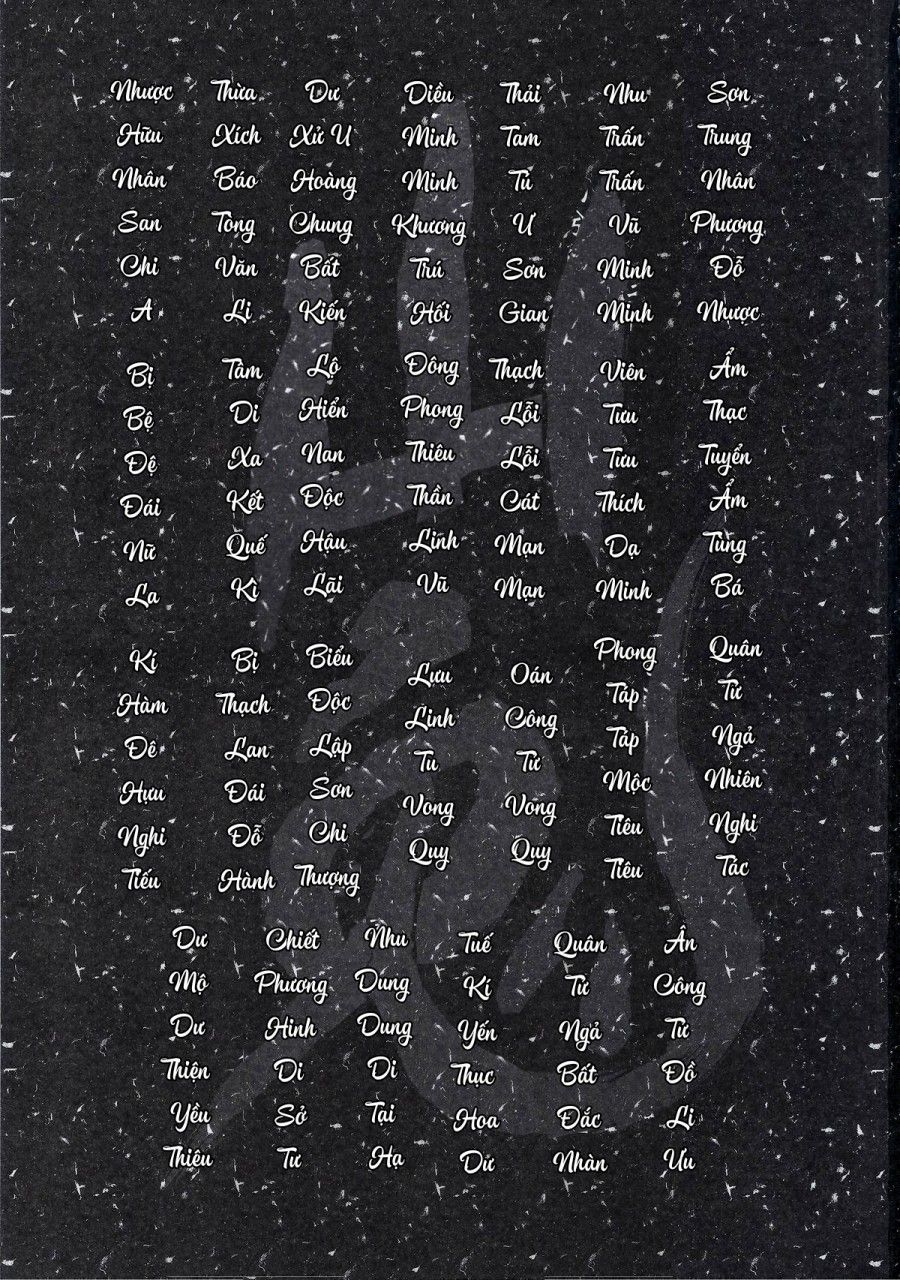 Nhược Hữu Nhân San Chi A
Bị Bệ Đệ Đái Nữ La
Kí Hàm Đê Hựu Nghi Tiếu
Dư Mộ Dư Thiện Yểu Thiêu
Thừa Xích Báo Tòng Văn Li
Tâm Di Xa Kết Quế Kì
Bị Thạch Lan Đái Đỗ Hành
Chiết Phương Hinh Di Sở Tư
Dư Xử U Hoàng Chung Bất Kiến
Lộ Hiển Nan Độc Hậu Lãi
Biểu Độc Lập Sơn Chi Thượng
Nhu Dung Dung Di Tại Hạ
Diểu Minh Minh Khương Trú Hối
Đông Phong Thiêu Thần Linh Vũ
Lưu Linh Tu Vong Quy
Tuế Kí Yến Thục Hoa Dử
Thải Tam Tú Ư Sơn Gian
Thạch Lỗi Lỗi Cát Mạn Mạn
Oán Công Tử Vong Quy
Quân Tử Ngả Bất Đắc Nhàn
Nhu Trấn Trấn Vũ Minh Minh
Viên Tưu Tưu Thích Dạ Minh
Phong Táp Táp Mộc Tiêu Tiêu
Ân Công Tử Đồ Li Ưu
Sơn Trung Nhân Phương Đỗ Nhược
Ẩm Thạc Tuyển Ẩm Tùng Bá
Quân Tứ Ngả Nhiên Nghi Tác